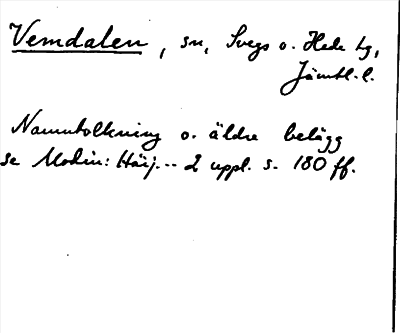 Vemdalen, sn, Svegs o. Hede tg,
Jämtl. l.
Namntolkning o. äldre belägg
se Modin: Härj.-- 2 uppl. s. 180 ff.